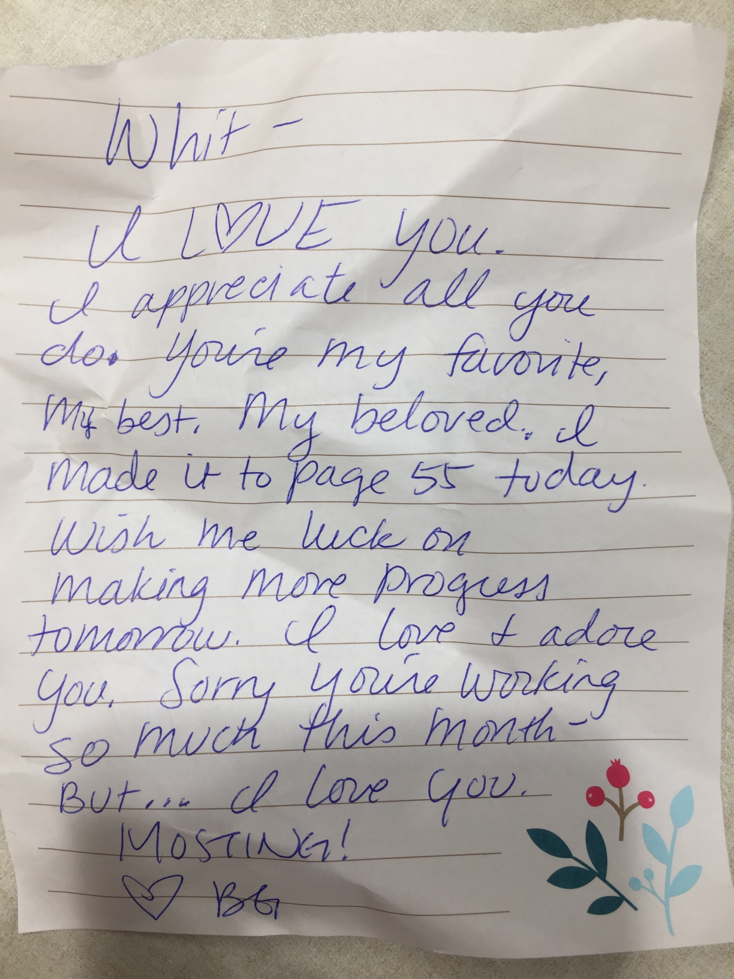 Whit -
I L♡VE YOU.
I appreciate all you
do. You're my favorite,
My best. My beloved. I
made it to page 55 today.
Wish me luck on
making more progress
tomorrow. I love & adore
you. Sorry you're working
so much this month-
But... I love you.
MOSTING!
♡ BG